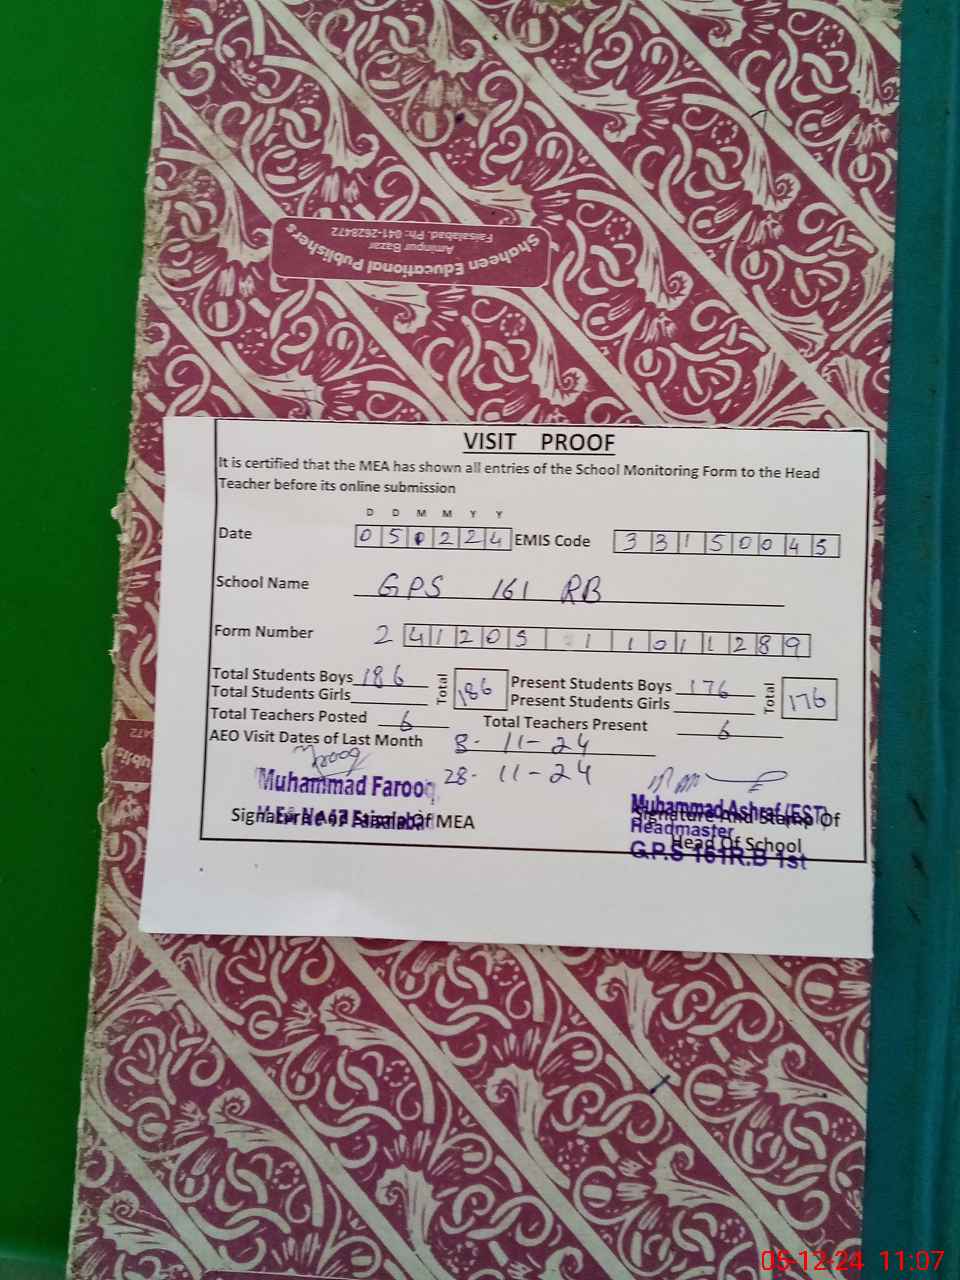 Shaheen Educational Publishers
Aminpur Bazar
Faisalabad. Ph: 041-2628472
VISIT PROOF
It is certified that the MEA has shown all entries of the School Monitoring Form to the Head
Teacher before its online submission
D D M M Y Y
Date 0 5 2 2 4 EMIS Code 3 3 1 5 0 0 4 5
School Name GPS 161 RB
Form Number 2 4 1 2 0 5 1 1 0 1 1 2 8 9
Total Students Boys 186 Total 186 Present Students Boys 176 Total 176
Total Students Girls Present Students Girls
Total Teachers Posted 6 Total Teachers Present 6
AEO Visit Dates of Last Month 8-11-24
28-11-24
Farooq
Muhammad Farooq
Signature And Stamp Of MEA
Muhammad Ashraf (EST)
Signature And Stamp Of
Headmaster
Head Of School
G.P.S 161R.B 1st
05-12-24 11:07